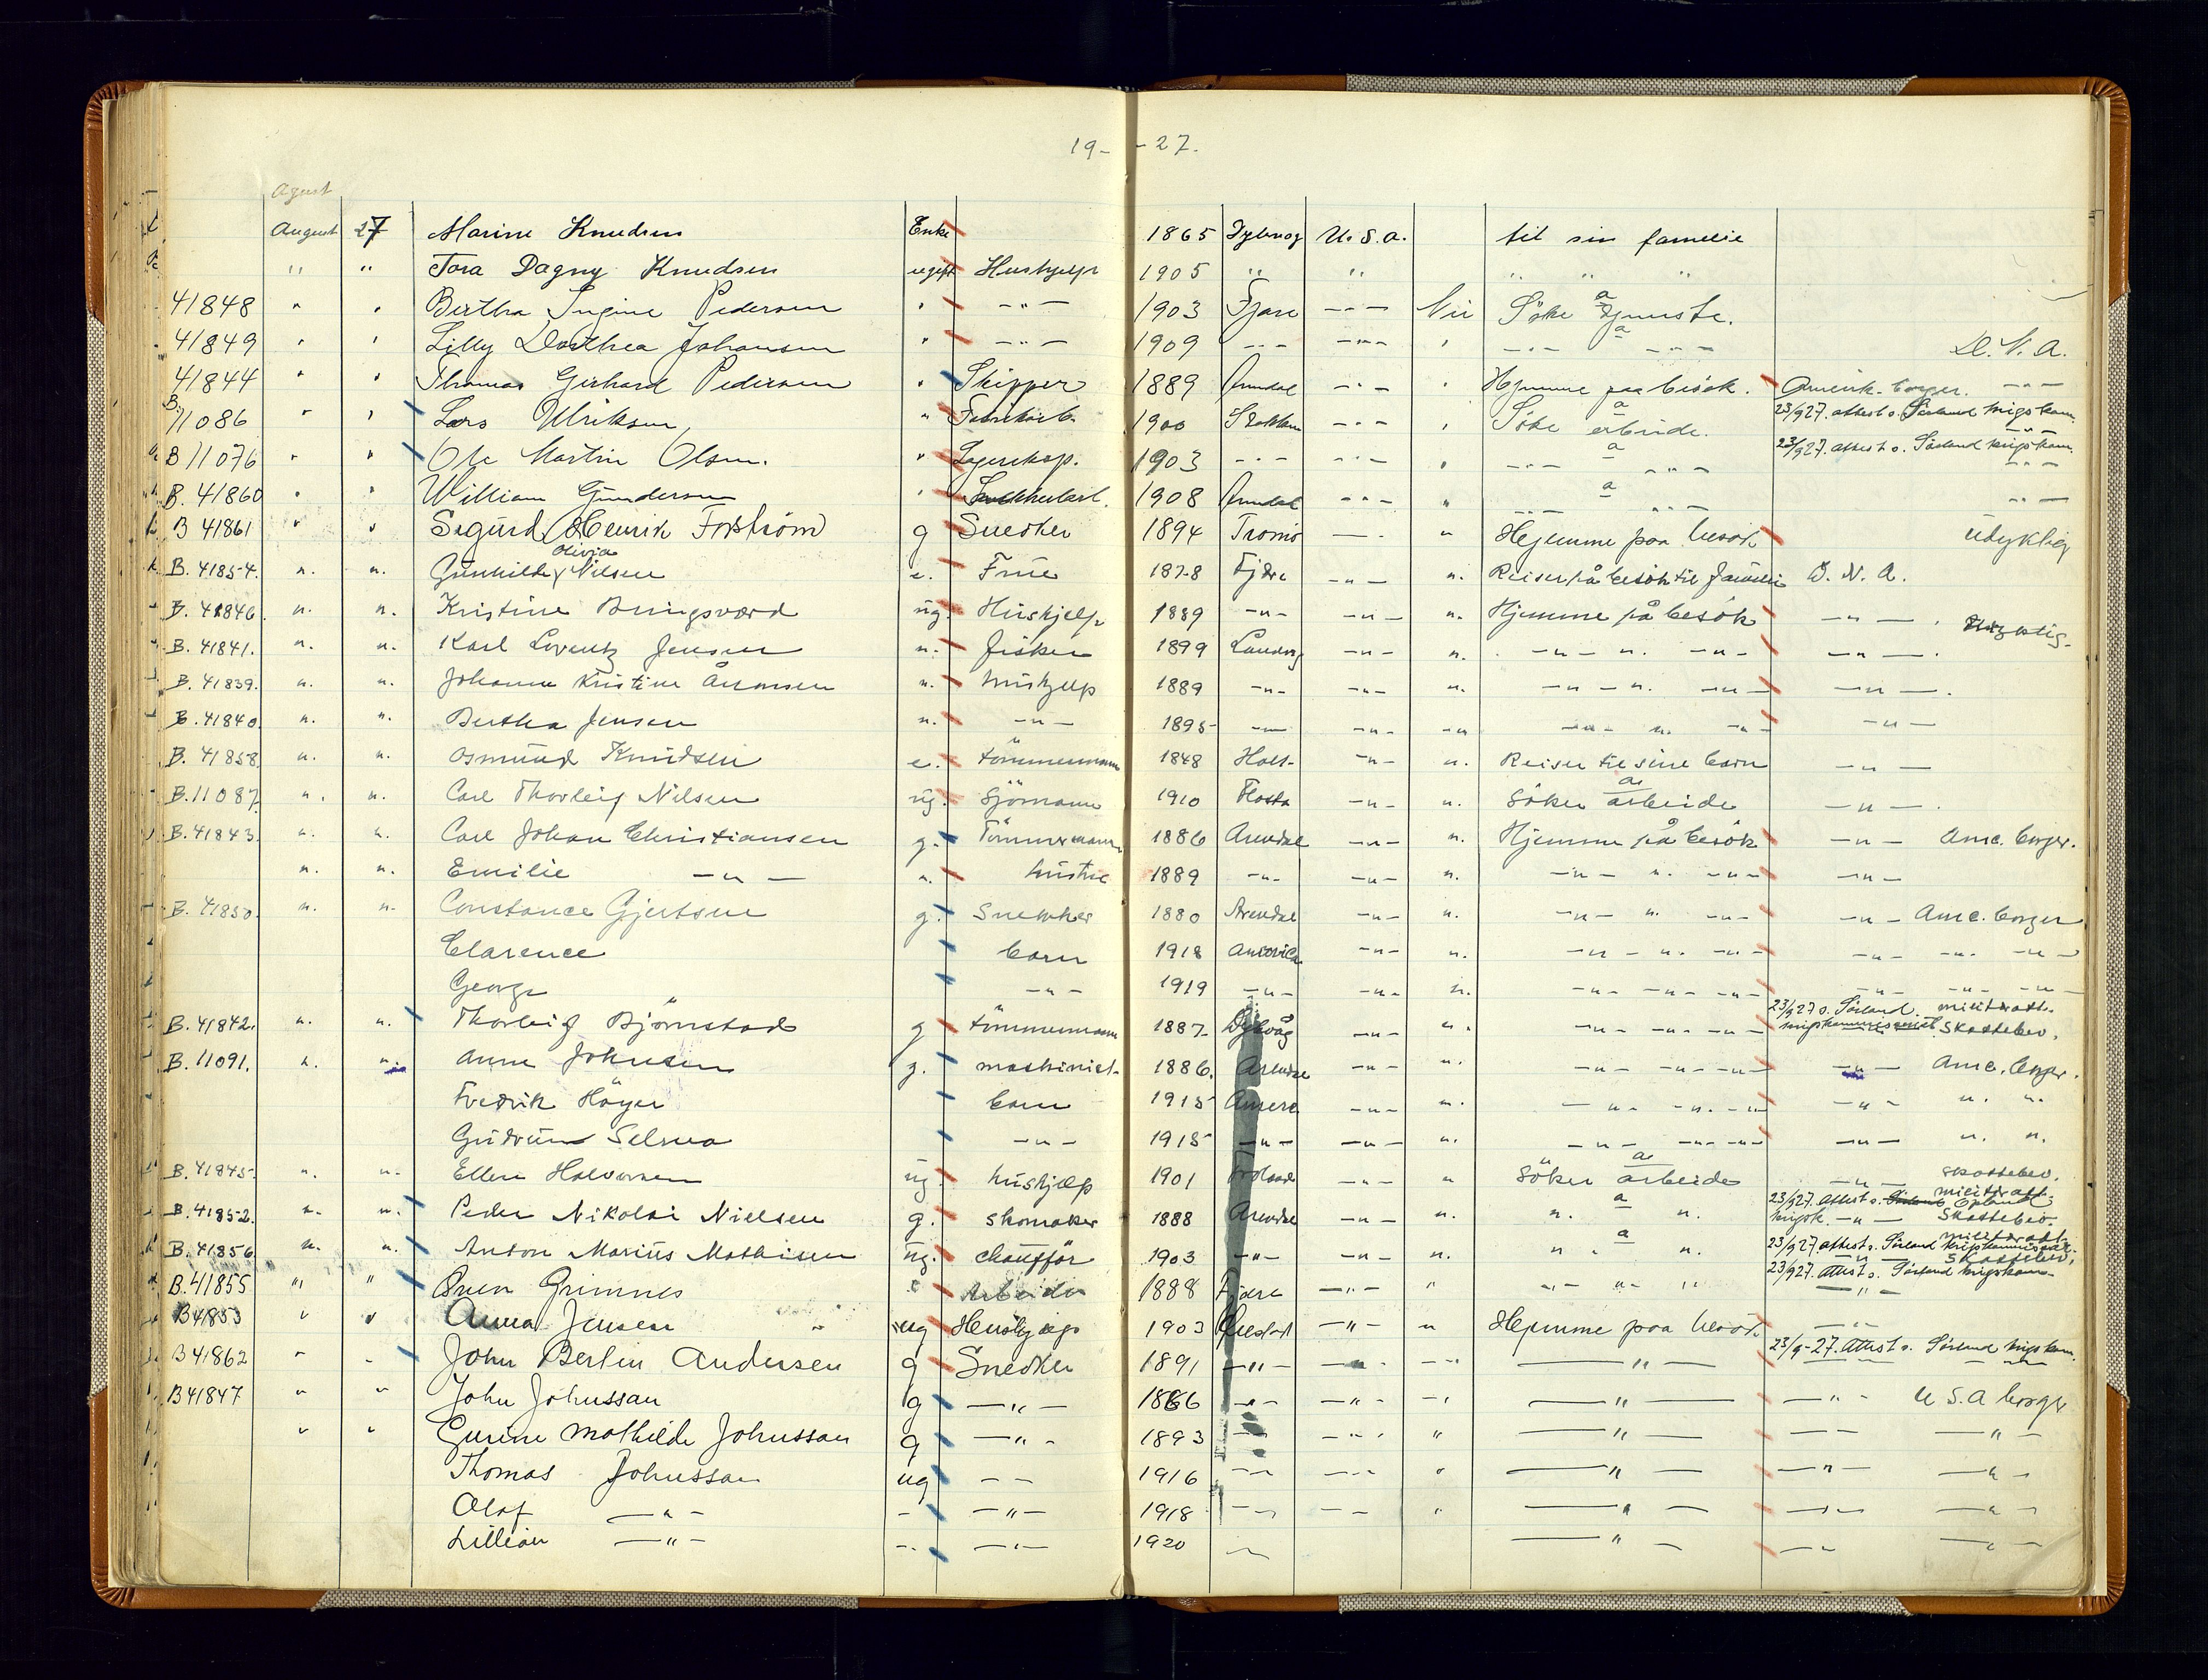 19- -27.
Agust
August 27 Marine Knudsen Enke 1865 Dybvog U.S.A. til sin familie
" " Tora Dagny Knudsen ugift Hushjelp 1905 " " " " "
41848 " " Bertha Ingine Pedersen " - " - 1903 Fjære - " - Nei Söke tjeneste. a
41849 " " Lilly Dorthea Johansen " - " - 1909 - " - - " - " - " - - " - a D.N.A.
41844 " " Thomas Gerhard Pedersen " Skipper 1889 Arendal - " - " Hjemme paa besök. Amerik. borger. - " -
B. 11086 " " Lars Ulriksen " Fabrikarb. 1900 Stokken - " - " Söke arbeide. a 23/9 27. attest o. Sörland krigskom. - " -
B 11076 " " Ole Martin Olsen. " Lagerexp. 1903 - " - - " - " - " - - " - a 23/9 27. attest o. Sörland krigskom. - " -
B. 41860 " " William Gundersen " 1908 Arendal - " - " - " - - " - a - " -
B 41861 " " Sigurd Henrik Forström g Snedker 1894 Tromö - " - " Hejemme paa besök udyktig
B. 41854. " " Gunhild Olivia Nilsen e. Frue 1878 Fjære - " - " Reiser på besök til familie D.N.A.
B. 41846. " " Kristine Bringsværd ug. Hushjelp 1889 - " - - " - " Hjemme på besök - " -
B. 41841. " " Karl Lorentz Jensen " fisker 1899 Landvig - " - " - " - " - " - - " - udyktig.
B. 41839. " " Johanne Kristine Aronsen " hushjelp 1889 - " - - " - " - " - " - " - - " -
B. 41840. " " Bertha Jensen " - " - 1895 - " - - " - " - " - " - " - - " -
B. 41858. " " Osmund Knudsen e. tömmermann 1848 Holt - " - " Reiser til sine barn - " -
B. 11087. " " Carl Thorleif Nilsen ug. Sjömann 1910 Flosta - " - " Söker arbeide a. - " -
B. 41843. " " Carl Johan Christiansen g. Tömmermann 1886 Arendal - " - " Hjemme på besök - " - Ame. borger.
" " Emilie - " - " hustru 1889 - " - - " - " - " - " - " - - " -
B. 41850. " " Constance Gjertsen g. Snekker 1880 Arendal - " - " - " - " - " - - " - Ame. borger
Clarence barn 1918 America - " - " - " - " - " - - " - - " - - " -
George - " - 1919 - " - - " - " - " - - " - - " - - " - - " - - " -
B. 41842. " " Thorleif Björnstad g tömmermann 1887 Dybvåg - " - " - " - - " - - " - 23/9 27 o. Sörland. krigskommissariat militæratt. Skattebev.
B. 11091. " " Anne Johnsen g. maskinist 1886. Arendal - " - " - " - - " - - " - - " - Ame. borger.
Fredrik Höyer barn 1915 Amera - " - " - " - - " - " - - " - " "
Gudrun Selma - " - 1915 - " - - " - " - " - - " - " - - " - " "
B. 41845. " " Ellen Halvorsen ug. hushjelp 1901 Froland - " - " Söker arbeide a. - " - skattebev.
B. 41852. " " Peder Nikolai Nielsen g. skomaker 1888 Arendal - " - " " a " 23/9 27. attest o. Opland krigsk. - " - militæratt. Skattebev.
B. 41856. " " Anton Marius Mathisen ug. chaufför 1903 - " - - " - " " a " 23/9 27. attest o. Sörland krigskommissar. militæratt. Skattebev.
B. 41855 " " Sven Grimnes " Arbeider 1888 Fjære - " - " - " - " - " 23/9 27. attest o. Sörland krigskom. - " -
B 41853 " " Anna Jensen ug Hushjelp 1903 - " - " Hejemme paa besök - " -
B 41862 " " John Bertin Andersen g Snedker 1891 - " - - " - - " - " - 23/9-27. attest o. Sörland krigskom.
B 41847 " " John Johnssan g - " - 1886 - " - - " - - " - " - - " - U S.A borger
" " Gurine Mathilde Johnssan g - " - 1893 - " - - " - " - " - - " - - " -
Thomas Johnssan ug - " - 1916 - " - - " - " - " - - " - - " -
Olaf - " - - - " - 1918 - " - - " - " - " - - " - - " -
Lillian - " - - " - " - 1920 - " - - " - - " - - " -